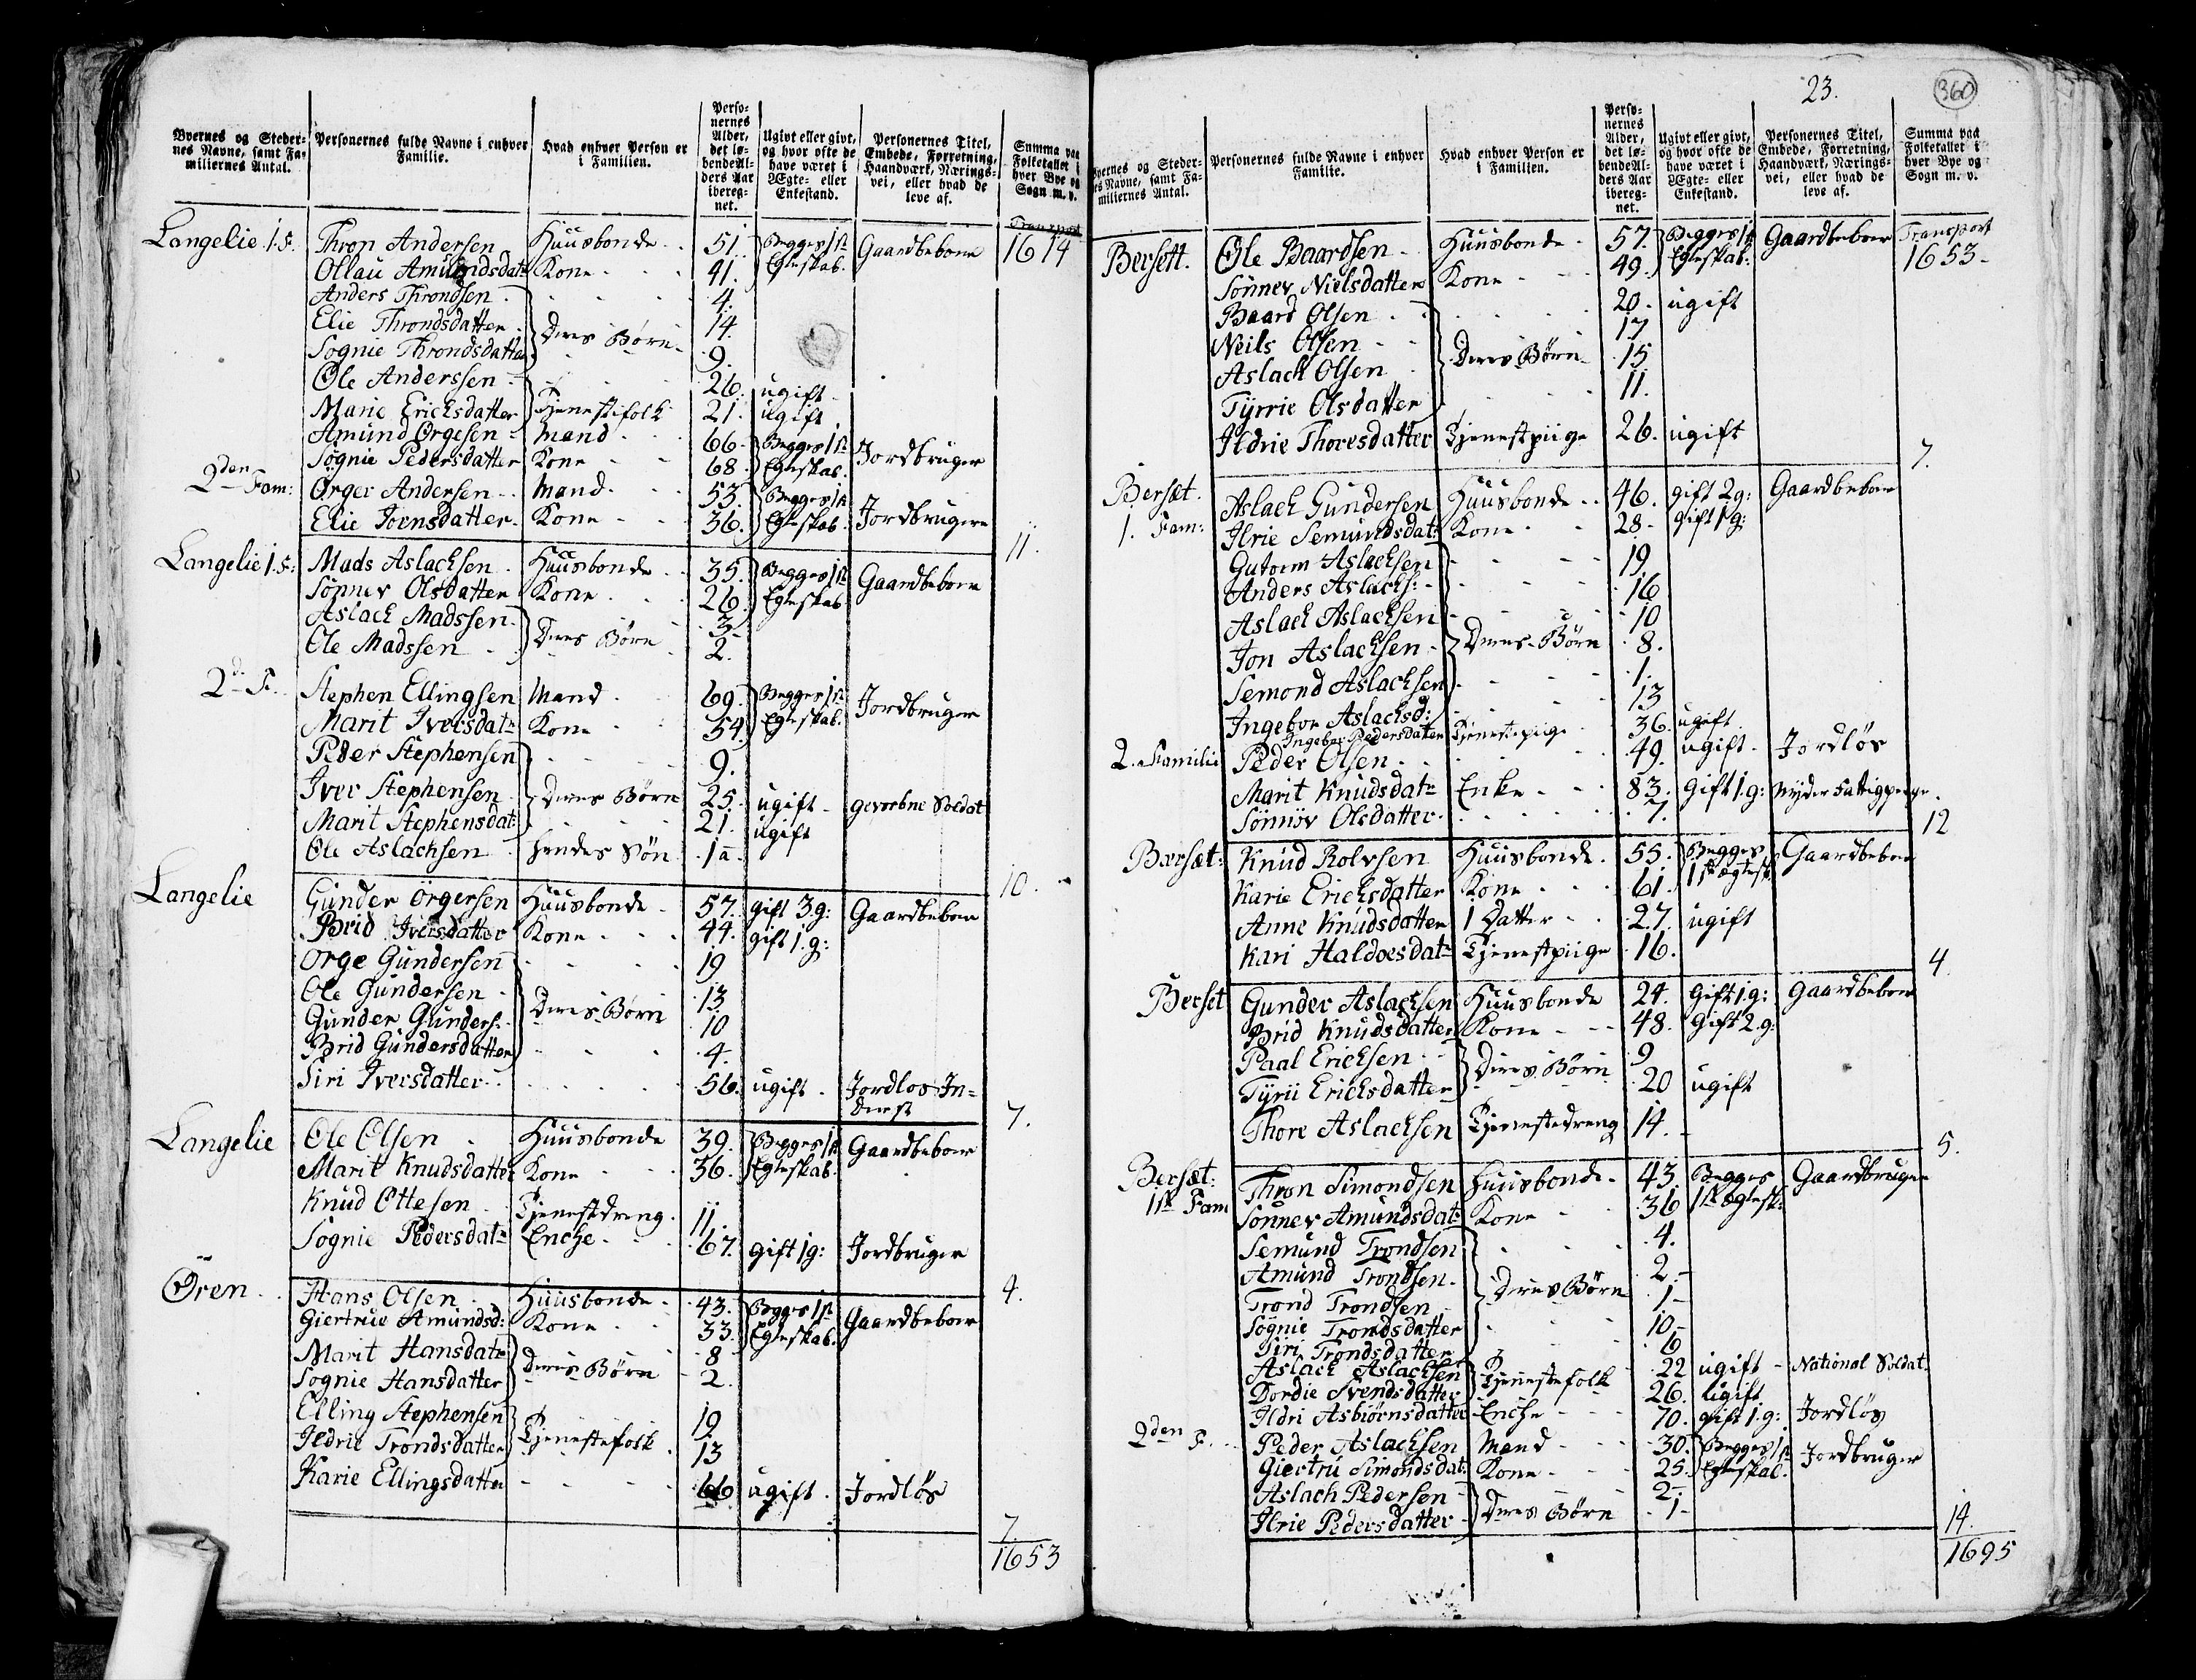 Byernes og Steder-
nes Navne, samt Fa-
miliernes Antal.
Personernes fulde Navne i enhver
Familie.
Hvad enhver Person er
i Familien.
Perso-
nernes
Alder,
det lø-
bende Al-
ders Aar
ibereg-
net.
Ugivt eller givt,
og hvor ofte de
have været i
Ægte- eller
Enkestand.
Personernes Titel,
Embede, Forretning,
Haandværk, Nærings-
vei, eller hvad de
leve af.
Summa paa
Folketallet i
hver Bye og
Sogn m. v.
Transport
Langelie 1.F. Thron Andersen Huusbonde 51. Begges 1ste Gaardbeboere 1614
Ollau Amundsdatr Kone 41. Egteskab.
Anders Throndsen 4.
Elie Throndsdatter Deres Børn 14.
Sognie Throndsdatter 9.
Ole Anderssen 26. ugift
Marie Erichsdatter Tjenestefolk 21. ugift
Amund Ørgesen Mand 66. Begges 1ste Jordbruger
Sognie Pedersdatter Kone 68. Egteskab.
2den Fam: Ørger Andersen Mand 53. Begges 1ste Jordbrugere
Elie Joensdatter Kone 36. Egteskab.
11.
Langelie 1.F: Mads Aslachsen Huusbonde 35. Begges 1ste Gaardbeboere
Sønnev Olsdatter Kone 26. Egteskab
Aslach Madssen Deres Børn 3.
Ole Madssen 2.
2d F. Stephen Ellingsen Mand 69. Begges 1ste Jordbruger
Marit Iversdatr Kone 54. Egteskab.
Peder Stephensen 9.
Iver Stephensen Deres Børn 25. ugift gevorbne Soldat
Marit Stephensdat: 21. ugift
Ole Aslachsen hendes Søn 1a.
10.
Langelie Gunder Örgersen Huusbonde 57. gift 3.g: Gaardbeboere
Brid Iversdatter Kone 44. gift 1.g:
Orge Gundersen 19
Ole Gundersen Deres Børn 13
Gunder Gunders: 10
Brid Gundersdatter 4.
Siri Iversdatter 56. ugift Jordløs In-
derst
7.
Langelie Ole Olsen Huusbonde 39. Begges 1ste Gaardbeboere
Marit Knudsdatter Kone 36. Egteskab.
Knud Ottesen Tjenestdreng 11.
Sognie Pedersdatr Enche 67. gift 1g: Jordbruger
4.
Ören Hans Olsen Huusbonde 43. Begges 1ste Gaardbeboere
Giertrue Amundsd: Kone 33. Egteskab.
Marit Hansdatr Deres Børn 8
Sognie Hansdatter 2.
Elling Stephensen Tjenestefolk 19
Ildrie Trondsdatter 13
Karie Ellingsdatter 66 ugift Jordløs
7.
1653
23.
360
Byernes og Steder-
nes Navne, samt Fa-
miliernes Antal.
Personernes fulde Navne i enhver
Familie.
Hvad enhver Person er
i Familien.
Perso-
nernes
Alder,
det lø-
bende Al-
ders Aar
ibereg-
net.
Ugivt eller givt,
og hvor ofte de
have været i
Ægte- eller
Enkestand.
Personernes Titel,
Embede, Forretning,
Haandværk, Nærings-
vei, eller hvad de
leve af.
Summa paa
Folketallet i
hver Bye og
Sogn m. v.
Bersett. Ole Baardsen Huusbonde 57. Begges 1ste Gaardbeboere Transport
Sönnev Nielsdatter Kone 49. Egteskab. 1653
Baard Olsen 20. ugift
Neils Olsen 17
Aslach Olsen Deres Børn 15
Tyrrie Olsdatter 11.
Ildrie Thoresdatter Tjenestpiige 26. ugift
7.
Bersæt. Aslach Gundersen Huusbonde 46. gift 2g: Gaardbeboere
1. Fam: Ilrie Semundsdat: Kone 28. gift 1g:
Gutorm Aslachsen 19.
Anders Aslachs: 16
Aslach Aslachsen 10
Jon Aslachsen Deres Børn 8.
Semond Aslachsen 1.
Ingebor Aslachsd: 13
Ingebor Pedersdatter Tjenestepiige 36. ugift
2. Familie Peder Olsen 49. ugift Jordløs
Marit Knudsdatr Enke 83. Gift 1.g: Nyder Fattigpenge
Sönnöv Olsdatter 7.
12
Bærsæt: Knud Rolvsen Huusbonde 55. Begges Gaardbeboere
Karie Erichsdatter Kone 61. 1ste Ægtesk.
Anne Knudsdatter 1 Datter 27. ugift
Kari Haldoesdatr Tjenestpiige 16.
4.
Berset Gunder Aslachsen Huusbonde 24. Gift 1.g: Gaardbeboere
Brid Knudsdatter Kone 48. Gift 2.g:
Paal Erichsen Deres Børn 9
Tyrii Erichsdatter 20 ugift
Thore Aslachsen Tjenestedreng 14.
5.
Bersæt: Thron Simondsen Huusbonde 43. Begges Gaardbruger
1ste Fam Sonnev Amundsdat: Kone 36 1ste Egtesk:
Semund Trondsen 4.
Amund Trondsen 2.
Trond Trondsen Deres Børn 1
Sognie Trondsdatter 10
Siri Trondsdatter 6
Aslach Aslachsen Tjenestefolk 22 ugift National Soldat
Dordie Svendsdatter 26. Ugift
Ildri Asbiørnsdatter Enche 70. gift 1.g: Jordløs
2den F. Peder Aslachsen Mand 30. Begges 1ste Jordbruger
Giertru Simondsdat: Kone 25. Egteskab.
Aslach Pedersen Deres Børn 2
Ilrie Pedersdatter 1
14.
1695